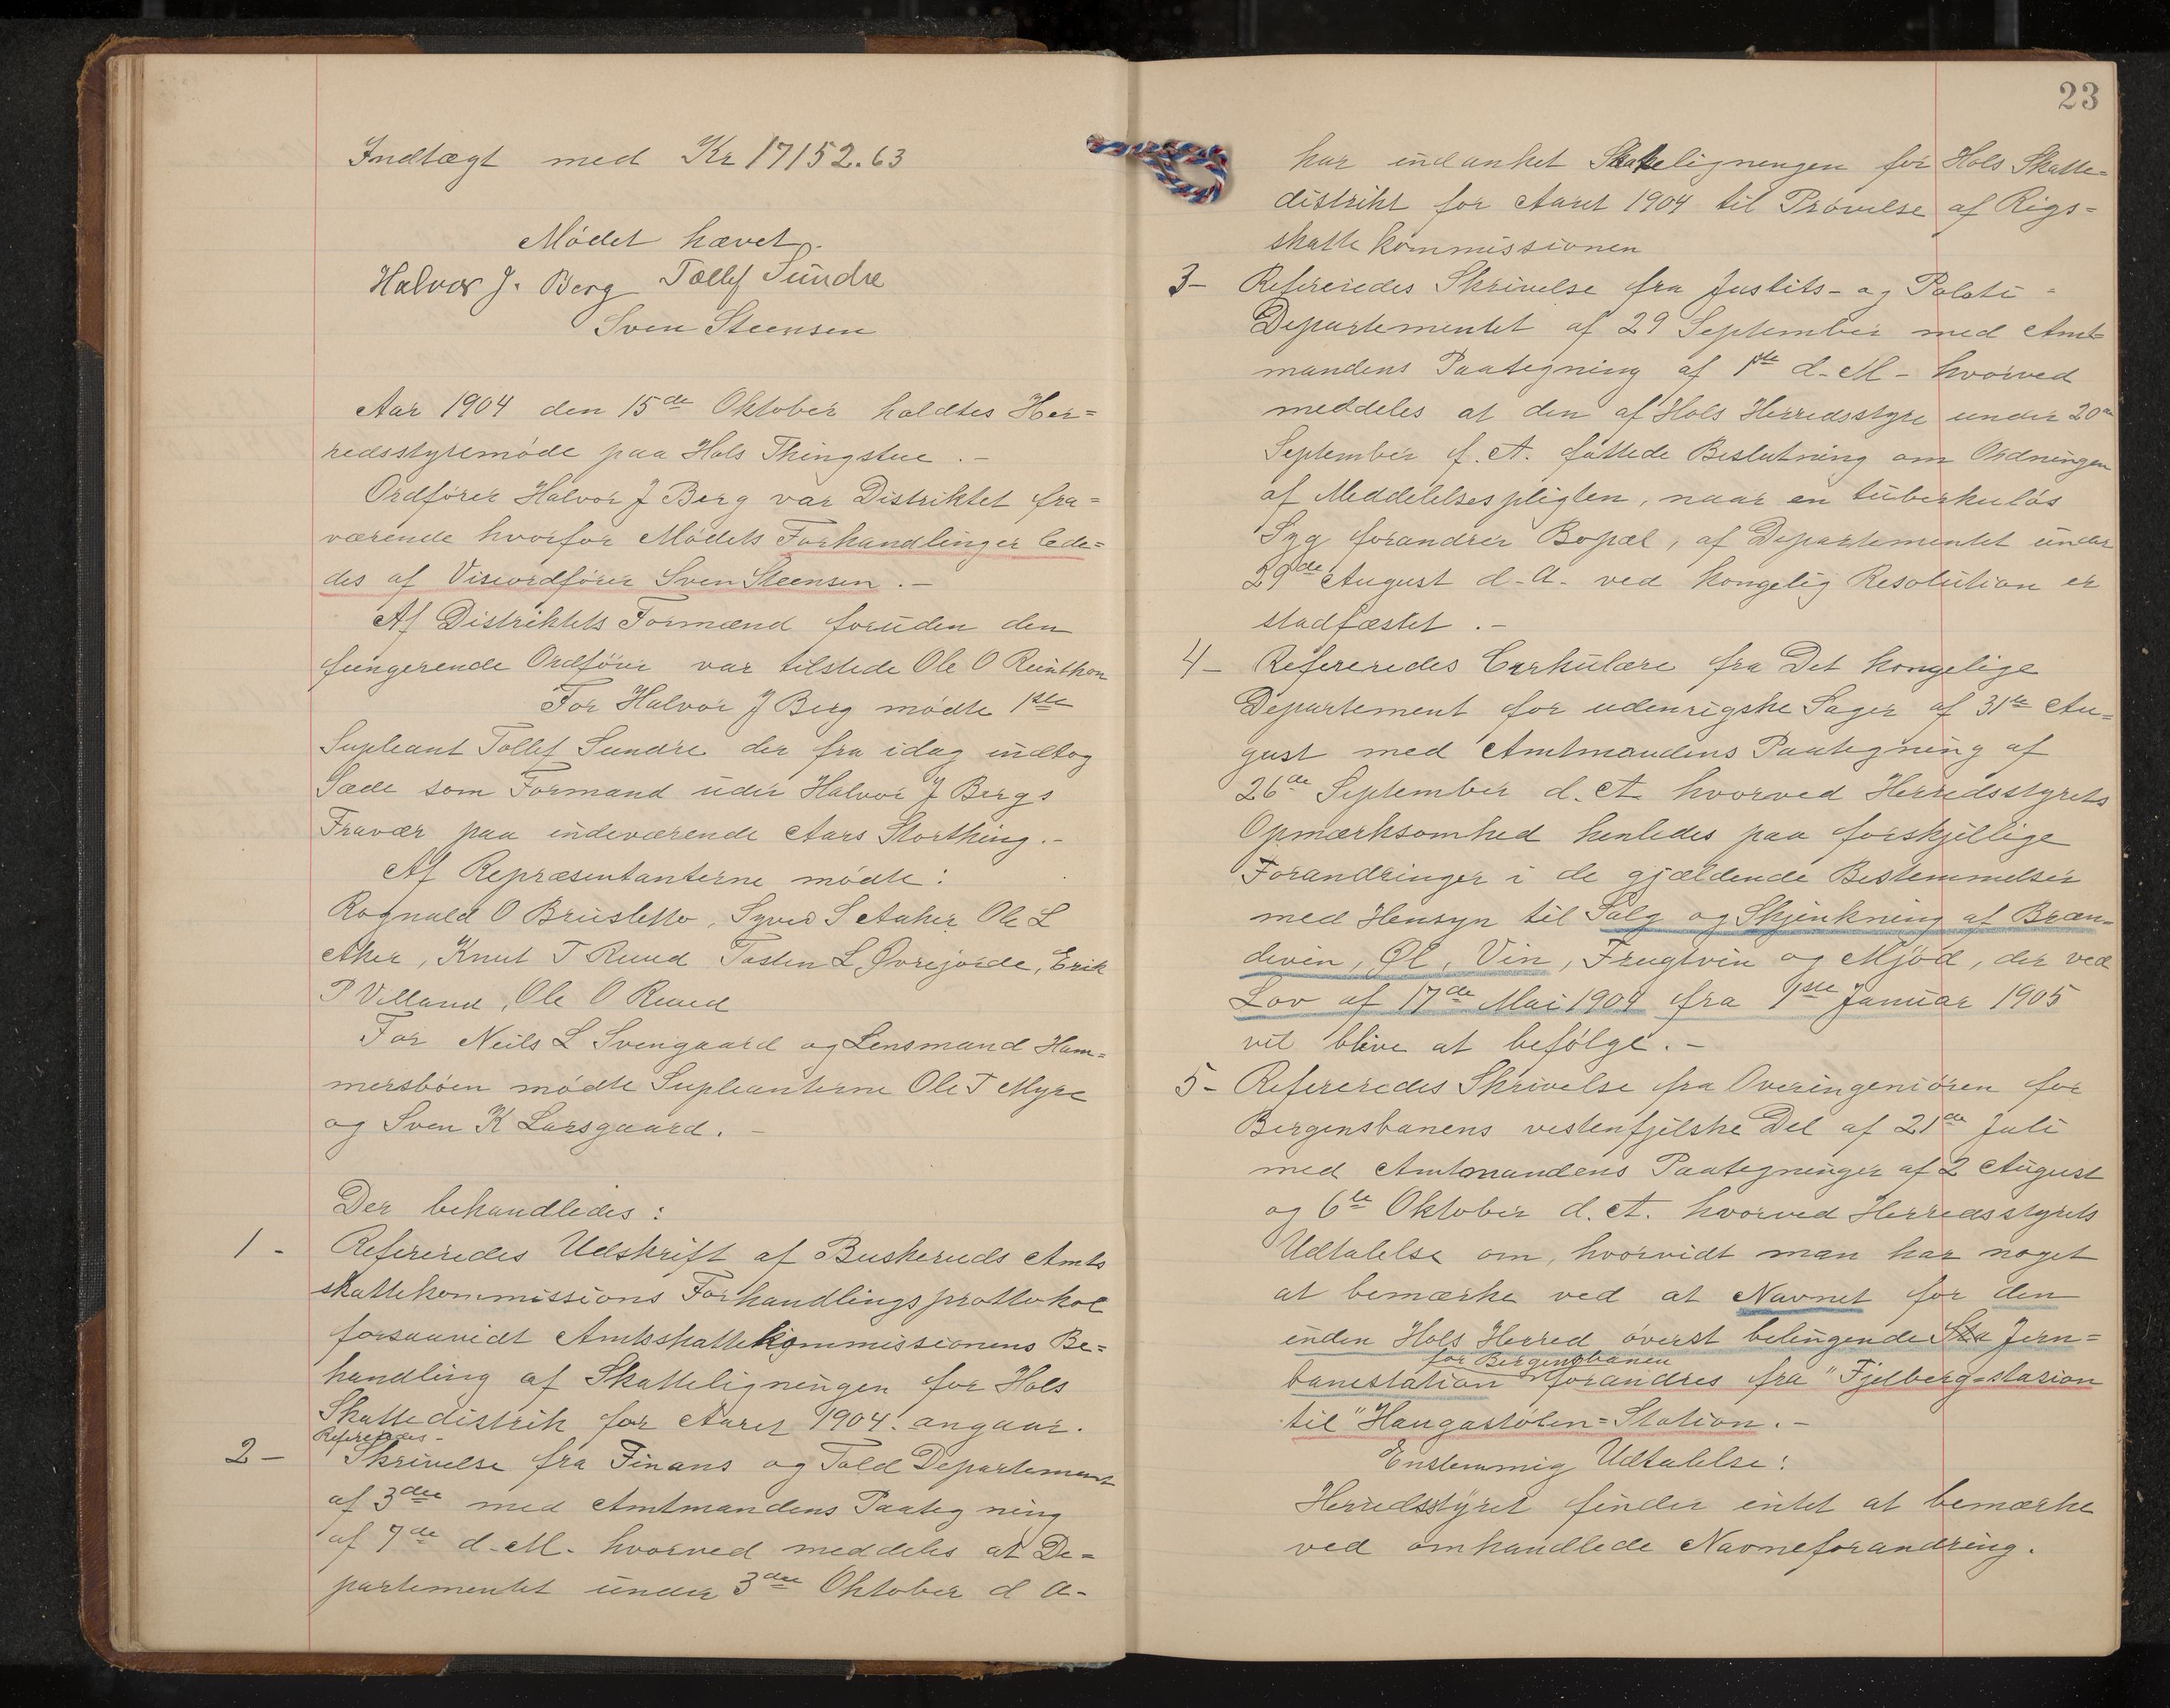 Indtægt med Kr 17152.63
Mødet hævet.
Halvor J. Berg Tollef Sundre
Sven Steensen
Aar 1904 den 15de Oktober holdtes Her=
redsstyremøde paa Hols Thingstue .-
Ordfører Halvor J Berg var Distriktet fra=
værende hvorfor Mødets Forhandlinger lede=
des af Viseordfører Sven Steensen .-
Af Distriktets Formænd foruden den
fungerende Ordfører var tilstede Ole O
For Halvor J Berg mødte 1ste
Supleant Tollef Sundre der fra idag indtog
Sæde som Formand uder Halvor J Bergs
Fravær paa indeværende Aars Storthing .-
Af Repræsentanterne mødte :
Ragnald O Brusletto, Syver S Aaker Ole L
Aker, Knut T Ruud Tosten L Øvrejorde, Erik
P Villand, Ole O Ruud
For Neils L Svengaard og Lensmand Ham=
mersbøen mødte Supleanterne Ole T Myre
og Sven K Larsgaard. -
Der behandledes :
1 - Refereredes Udskrift af Buskeruds Amts
skattekommissions Forhandlingsprottokol
forsaavidt Amtsskattekommissionens Be=
handling af Skatteligningen for Hols
Skattedistrik for Aaret 1904. angaar.
Refereredes -
2 - Skrivelse fra Finans og Told Departement
af 3die med Amtmandens Paategning
af 7de d. M. hvorved meddeles at De=
partementet under 3die Oktober d A-
23
har indanket Skatteligningen for Hols Skatte=
distrikt for Aaret 1904 til Prøvelse af Rigs=
skattekommissionen
3- Refereredes Skrivelse fra Justits- og Politi -
Departementet af 29 September med Amt=
mandens Paategning af 1ste d. M - hvorved
meddeles at den af Hols Herredsstyre under 20de
September f. A. fattede Beslutning om Ordningen
af Meddelelsespligten, naar en tuberkuløs
Syg forandrer Bopæl, af Departementet under
29de August d. A. ved kongelig Resolution er
stadfæstet .-
4- Refereredes Cirkulære fra Det kongelige
Departement for udenrigske Sager af 31te Au=
gust med Amtmandens Paategning af
26de September d. A hvorved Herredsstyrets
Opmærksomhed henledes paa forskjellige
Forandringer i de gjældende Bestemmelser
med Hensyn til Salg og Skjenkning af Bræn=
devin, Øl, Vin, Frugtvin og Mjød, der ved
Lov af 17de Mai 1904 fra 1ste Januar 1905
vil blive at befølge .-
5- Refereredes Skrivelse fra Overingeniøren for
Bergensbanens vestenfjelske Del af 21de Juli
med Amtmandens Paategninger af 2 August
og 6te Oktober d. A. hvorved Herredsstyrets
Udtalelse om, hvorvidt man har noget
at bemærke ved at Navnet for den
inden Hols Herred øverst beliggende Sta Jern=
for Bergensbanen
banestation forandres fra "Fjelberg=stasion
til "Haugastølen=Station .-
Enstemmig Udtalelse :
Herredsstyret finder intet at bemærke
ved omhandlede Navneforandring.